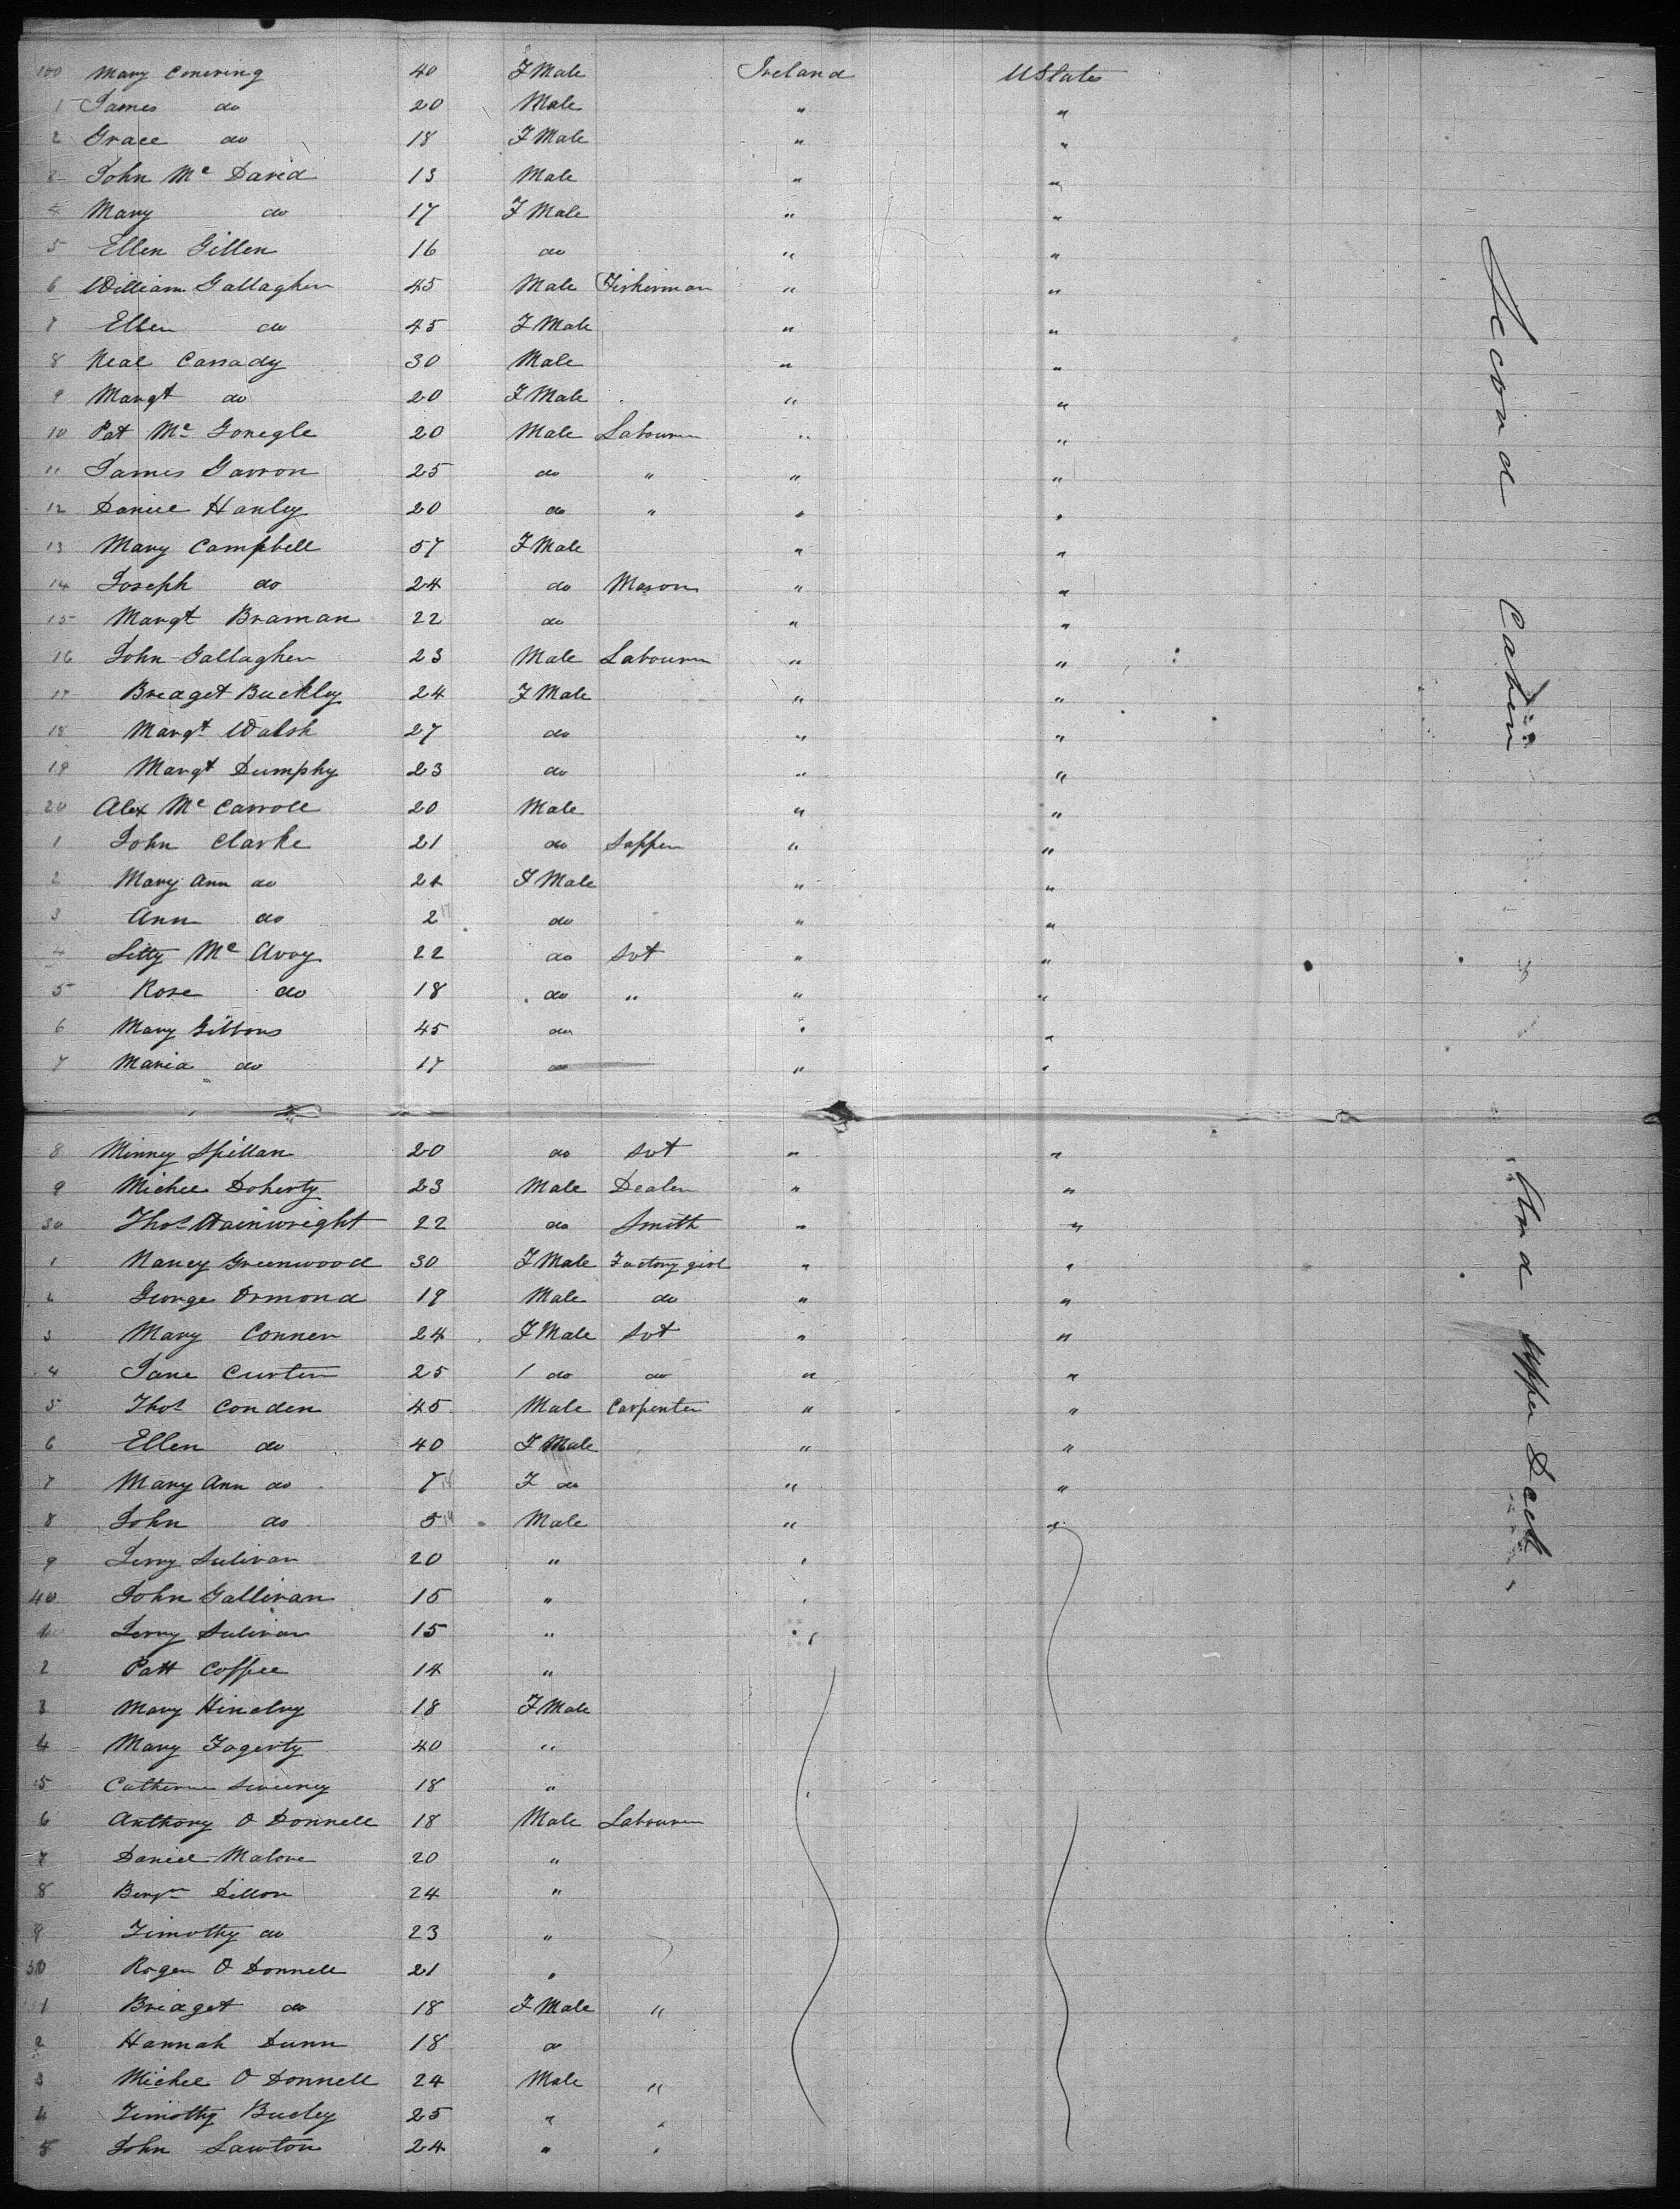 100 Mary Conering 40 FMale Ireland UStates
1 James do 20 Male " "
2 Grace do 18 FMale " "
3 John Mc David 13 Male " "
4 Mary do 17 FMale " "
5 Ellen Gillen 16 do " "
6 William Gallagher 45 Male Fisherman " "
7 Ellen do 45 FMale " "
8 Neal Cassady 30 Male " "
9 Margt do 20 FMale " "
10 Pat Mc Gonegle 20 Male Labourer " "
11 James Garron 25 do " " "
12 Daniel Hanley 20 do " " "
13 Mary Campbell 57 FMale " "
14 Joseph do 24 do Mason " "
15 Margt Braman 22 do " "
16 John Gallagher 23 Male Labourer " "
17 Bredget Buckley 24 FMale " "
18 Margt Walsh 27 do " "
19 Margt Dumphy 23 do " "
20 Alex Mc Carroll 20 Male " "
1 John Clarke 21 do Sapper " "
2 Mary Ann do 21 FMale " "
3 Ann do 2 do " "
4 Litty Mc Avoy 22 do Svt " "
5 Rose do 18 do " " "
6 Mary Gibbons 45 do " "
7 Maria do 17 do " "
8 Minney Spillan 20 do Svt " "
9 Michel Doherty 23 Male Dealer " "
30 Thos Wainwright 22 do Smith " "
1 Nancy Greenwood 30 FMale Factory girl " "
2 George Ormond 19 Male do " "
3 Mary Conner 24 FMale Svt " "
4 Jane Curten 25 do do " "
5 Thos Conden 45 Male Carpenter " "
6 Ellen do 40 FMale " "
7 Mary Ann do 7 F do " "
8 John do 5 Male " "
9 Jerry Sulivan 20 " "
40 John Gallivan 15 " "
1 Jerry Sulivan 15 " "
2 Patt Coffee 14 "
3 Mary 18 FMale
4 Mary Fogerty 40 "
5 Catherine Sweeney 18 "
6 Anthony O Donnell 18 Male Labourer
7 Daniel Malone 20 "
8 Benjn Dillon 24 "
9 Timothy do 23 "
50 Roger O Donnell 21 "
1 Bridget do 18 FMale "
2 Hannah Dunn 18 do
3 Michel O Donnell 24 Male "
4 Timothy Bucley 25 " "
5 John Lawton 24 " "
Second Cabin And Upper Deck